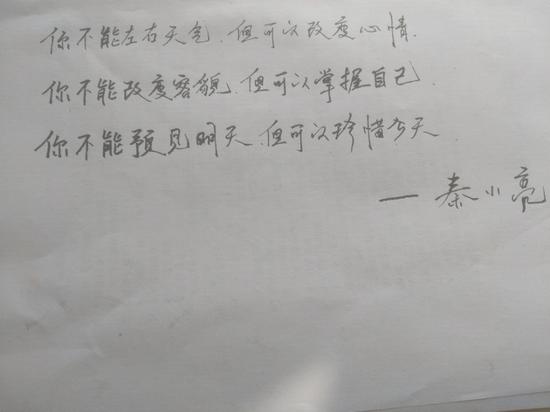 你不能左右天气，但可以改变心情.
你不能改变容貌，但可以掌握自己.
你不能预见明天，但可以珍惜今天
— 秦小亮